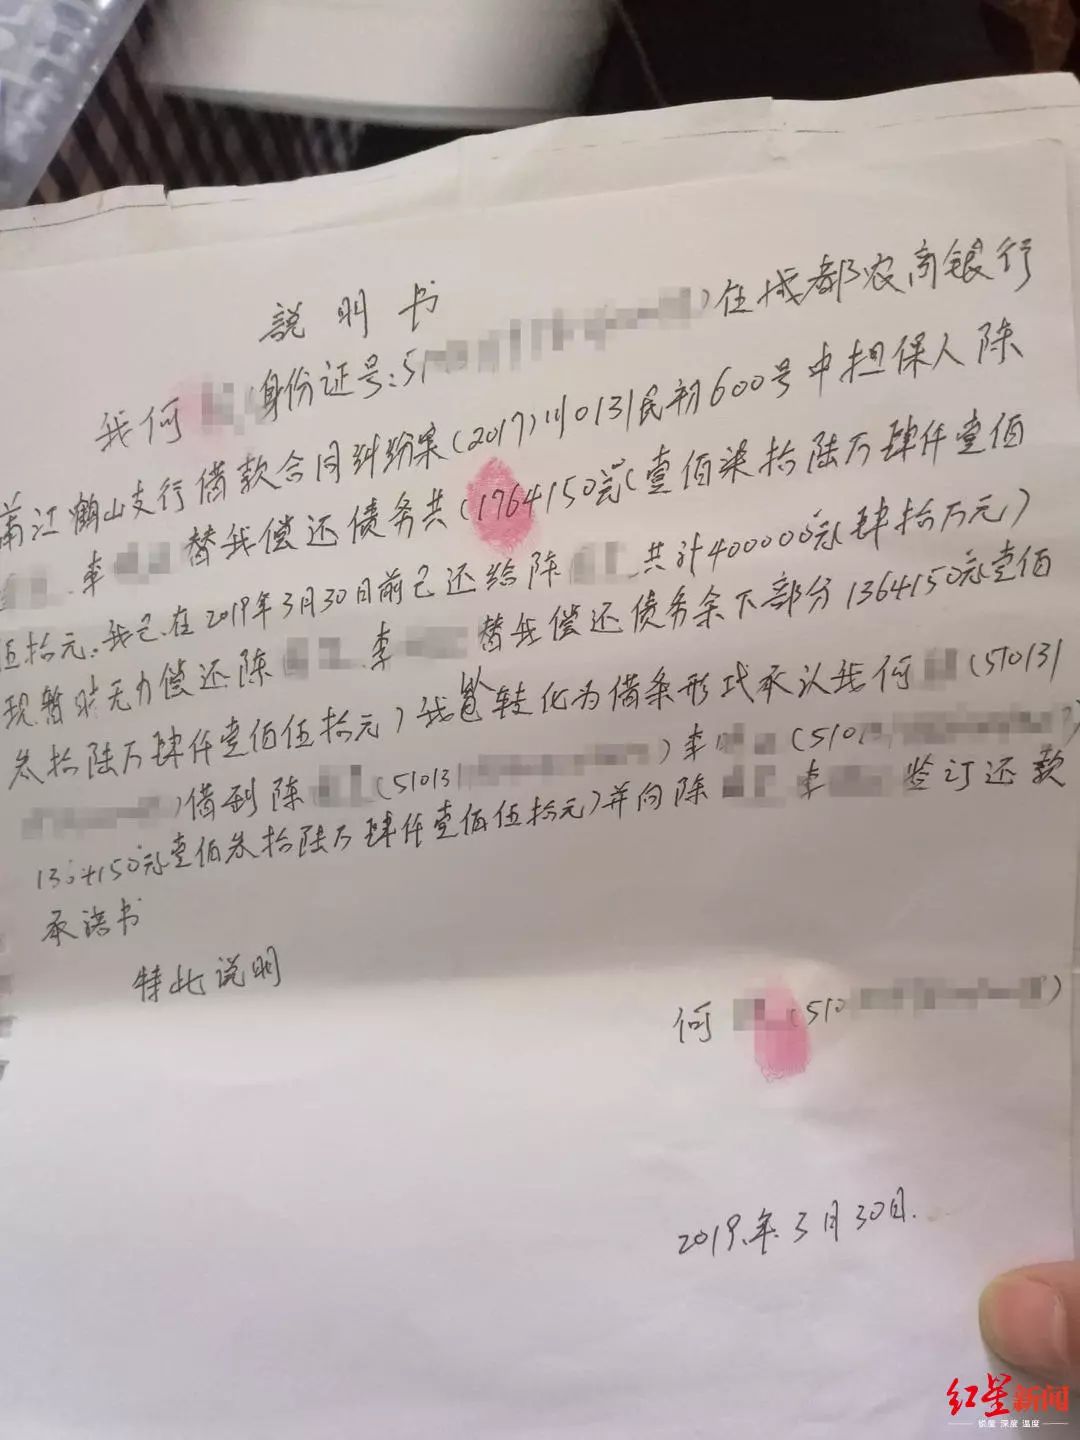 说明书
我何 (身份证号:51 )在成都农商银行
蒲江鹤山支行借款合同纠纷案(2017)川0131民初600号中担保人陈
、李 替我偿还债务共(1764150元(壹佰柒拾陆万肆仟壹佰
伍拾元。我已在2019年3月30日前已还给陈 共计400000元肆拾万元)
现暂时无力偿还陈 、李 替我偿还债务余下部分1364150元壹佰
叁拾陆万肆仟壹佰伍拾元)我 转化为借条形式承认我何 (510131
)借到陈 (510131 )李 (5101 )
1364150元壹佰叁拾陆万肆仟壹佰伍拾元)并向陈 、李 签订还款
承诺书
特此说明
何 (510 )
2019年3月30日.
红星新闻
锐度 深度 温度